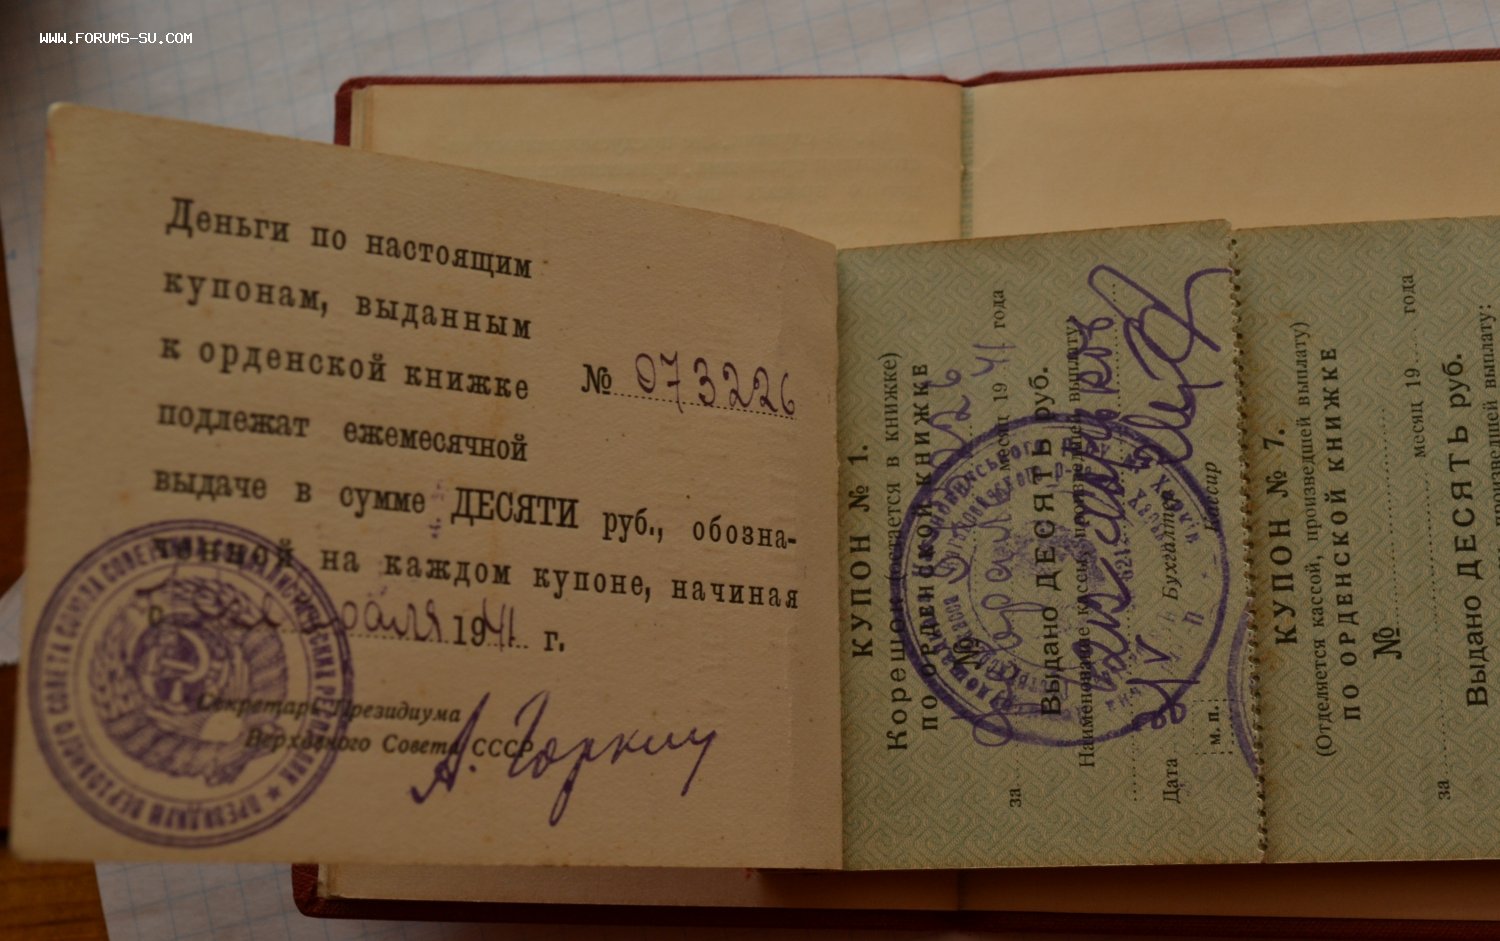 WWW.FORUMS-SU.COM
Деньги по настоящим
купонам, выданным
к орденской книжке № 073226
подлежат ежемесячной
выдаче в сумме ДЕСЯТИ руб., обозна-
ченной на каждом купоне, начиная
с 1941 г.
Секретарь Президиума
Верховного Совета СССР
А. Горкин
КУПОН № 1.
Корешок (остается в книжке)
ПО ОРДЕНСКОЙ КНИЖКЕ
№
за месяц 1941 года
Выдано ДЕСЯТЬ руб.
Наименование кассы, произведшей выплату:
Дата Бухгалтер
Кассир
м. п.
КУПОН № 7.
(Отделяется кассой, произведшей выплату)
ПО ОРДЕНСКОЙ КНИЖКЕ
№
за месяц 19 года
Выдано ДЕСЯТЬ руб.
произведшей выплату: